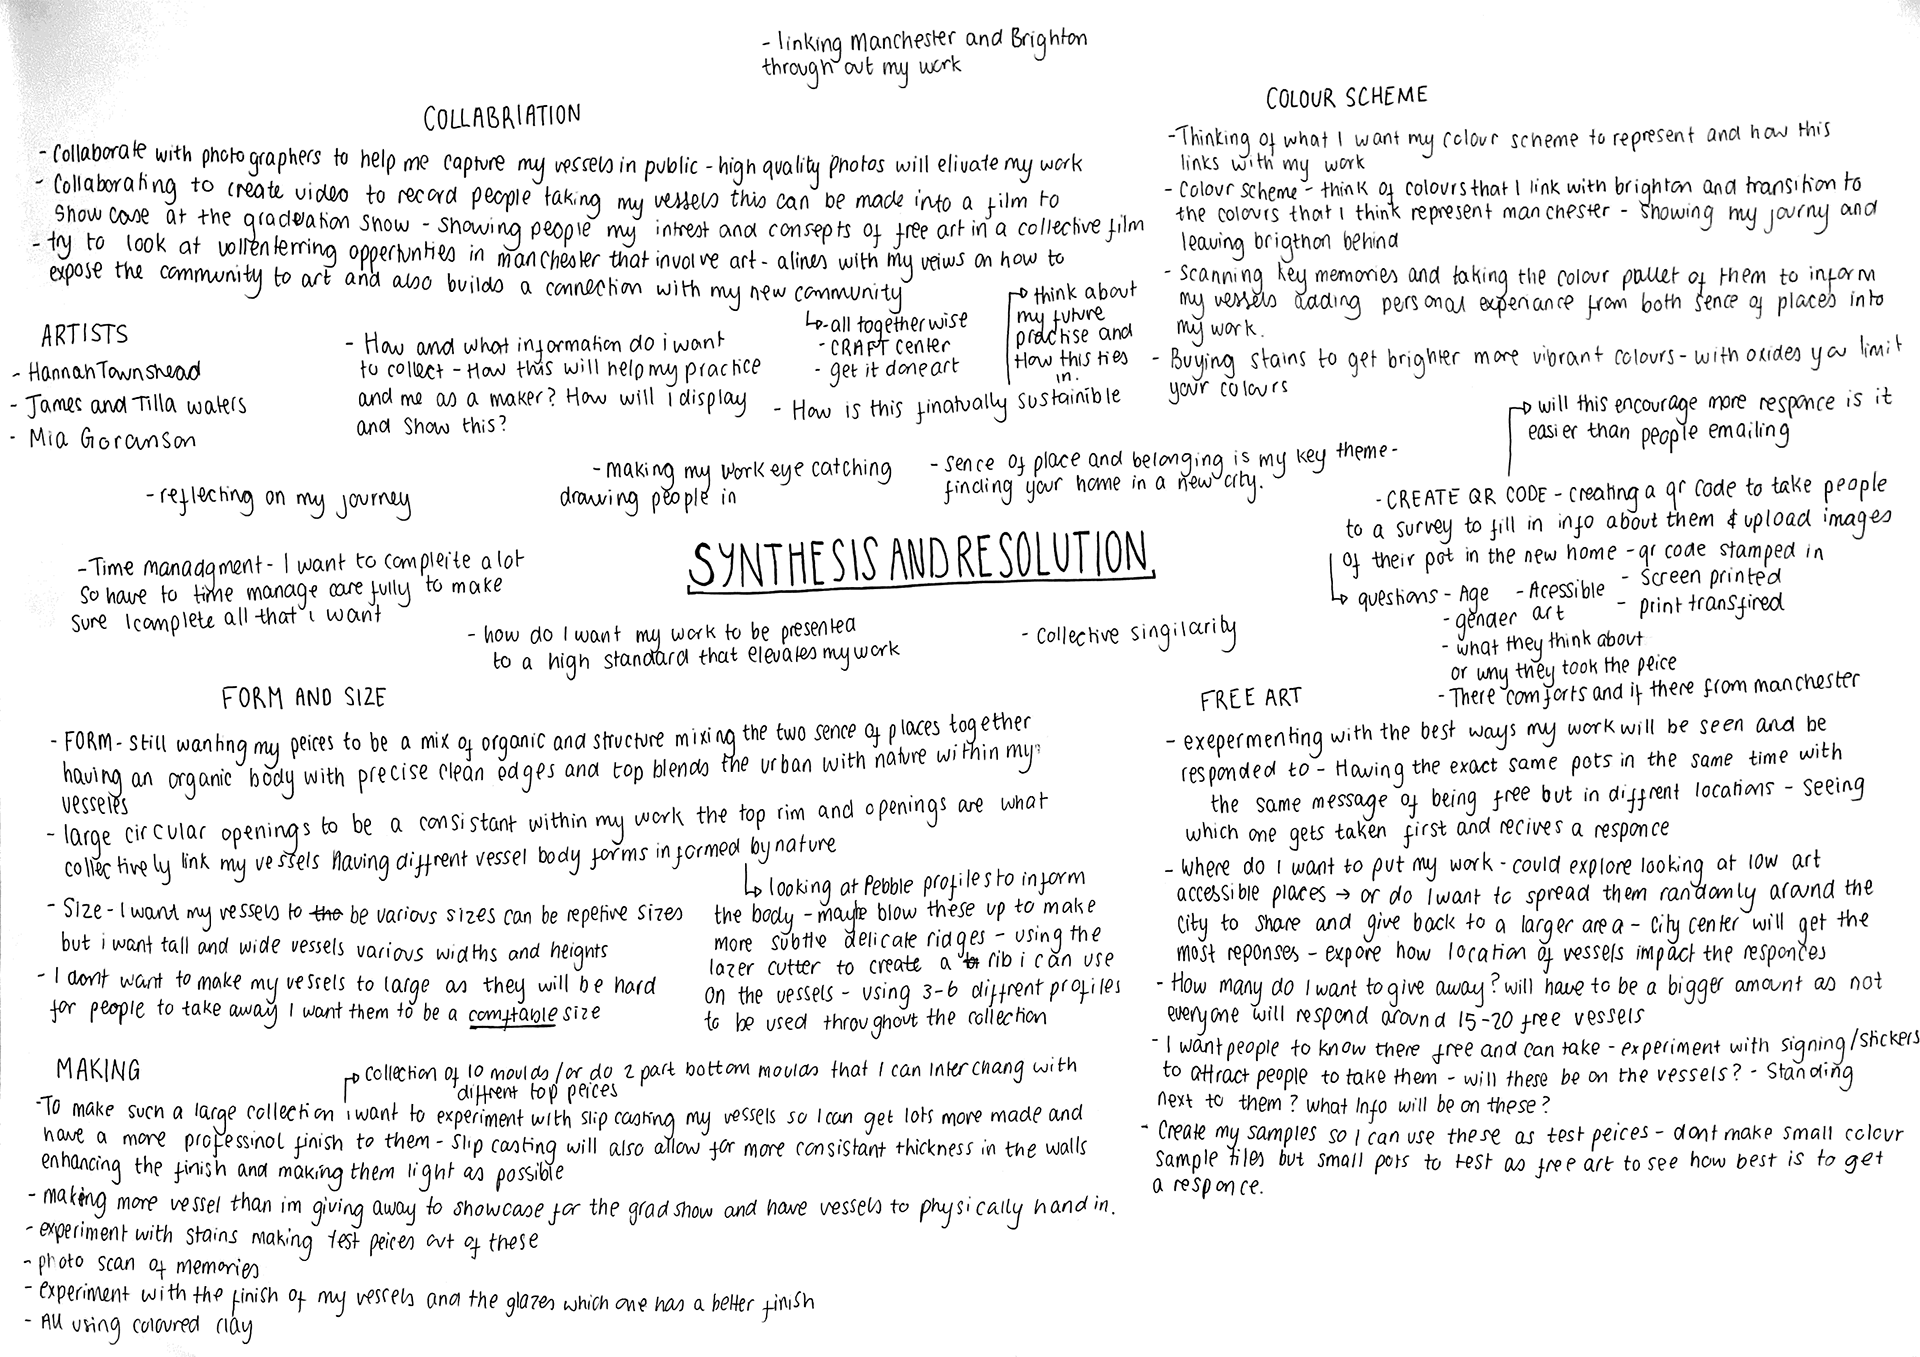 - linking Manchester and Brighton
through out my work
COLLABRIATION
- Collaborate with photographers to help me capture my vessels in public - high quality photos will elivate my work
- Collaborating to create video to record people taking my vessels this can be made into a film to
show case at the graduation show - showing people my intrest and consepts of free art in a collective film
- try to look at vollenterring oppertunties in manchester that involve art - alines with my veiws on how to
expose the community to art and also builds a connection with my new community
↳ - all togetherwise
- CRAFT center
- get it done art
think about
my future
practise and
How this ties
in.
- How is this finatually sustainible
COLOUR SCHEME
- Thinking of what I want my colour scheme to represent and how this
links with my work
- Colour scheme - think of colours that I link with brighton and transition to
the colours that I think represent manchester - showing my journy and
leaving brigthon behind
- scanning key memories and taking the colour pallet of them to inform
my vessels adding personal experiance from both sence of places into
my work.
- Buying stains to get brighter more vibrant colours - with oxides you limit
your colours
ARTISTS
- Hannah Townshead
- James and Tilla waters
- Mia Goranson
- How and what information do i want
to collect - How this will help my practice
and me as a maker? How will i display
and show this?
- reflecting on my journey
- making my work eye catching
drawing people in
- sence of place and belonging is my key theme -
finding your home in a new city.
will this encourage more responce is it
easier than people emailing
- CREATE QR CODE - creating a qr code to take people
to a survey to fill in info about them & upload images
of their pot in the new home - qr code stamped in
- Screen printed
- print transfired
↳ questions - Age - Acessible
- gender art
- what they think about
or why they took the peice
- There comforts and if there from manchester
- Time manadgment - I want to compleite a lot
so have to time manage care fully to make
sure I complete all that i want
SYNTHESIS AND RESOLUTION
- how do I want my work to be presented
to a high standard that elevates my work
- Collective singilarity
FORM AND SIZE
- FORM - still wanting my peices to be a mix of organic and structure mixing the two sence of places together
having an organic body with precise clean edges and top blends the urban with nature within my
vesseles
- large circular openings to be a consistant within my work the top rim and openings are what
collectively link my vessels having diffrent vessel body forms informed by nature
↳ looking at Pebble profiles to inform
the body - maybe blow these up to make
more subtle delicate ridges - using the
lazer cutter to create a rib i can use
on the vessels - using 3-6 diffrent profiles
to be used throughout the collection
- Size - I want my vessels to be various sizes can be repetive sizes
but i want tall and wide vessels various widths and heights
- I dont want to make my vessels to large as they will be hard
for people to take away I want them to be a comftable size
FREE ART
- exepermenting with the best ways my work will be seen and be
responded to - Having the exact same pots in the same time with
the same message of being free but in diffrent locations - seeing
which one gets taken first and recives a responce
- Where do I want to put my work - could explore looking at low art
accessible places → or do I want to spread them randomly around the
city to share and give back to a larger area - city center will get the
most reponses - expore how location of vessels impact the responces
- How many do I want to give away? will have to be a bigger amount as not
everyone will respond around 15-20 free vessels
- I want people to know there free and can take - experiment with signing/stickers
to attract people to take them - will these be on the vessels? - standing
next to them? what info will be on these?
- Create my samples so I can use these as test peices - dont make small colour
sample tiles but small pots to test as free art to see how best is to get
a responce.
MAKING
collection of 10 moulds/or do 2 part bottom moulds that I can inter chang with
diffrent top peices
- To make such a large collection i want to experiment with slip casting my vessels so I can get lots more made and
have a more professinol finish to them - slip casting will also allow for more consistant thickness in the walls
enhancing the finish and making them light as possible
- making more vessel than im giving away to showcase for the grad show and have vessels to physically hand in.
- experiment with stains making test peices out of these
- photo scan of memories
- experiment with the finish of my vessels and the glazes which one has a better finish
- All using coloured clay